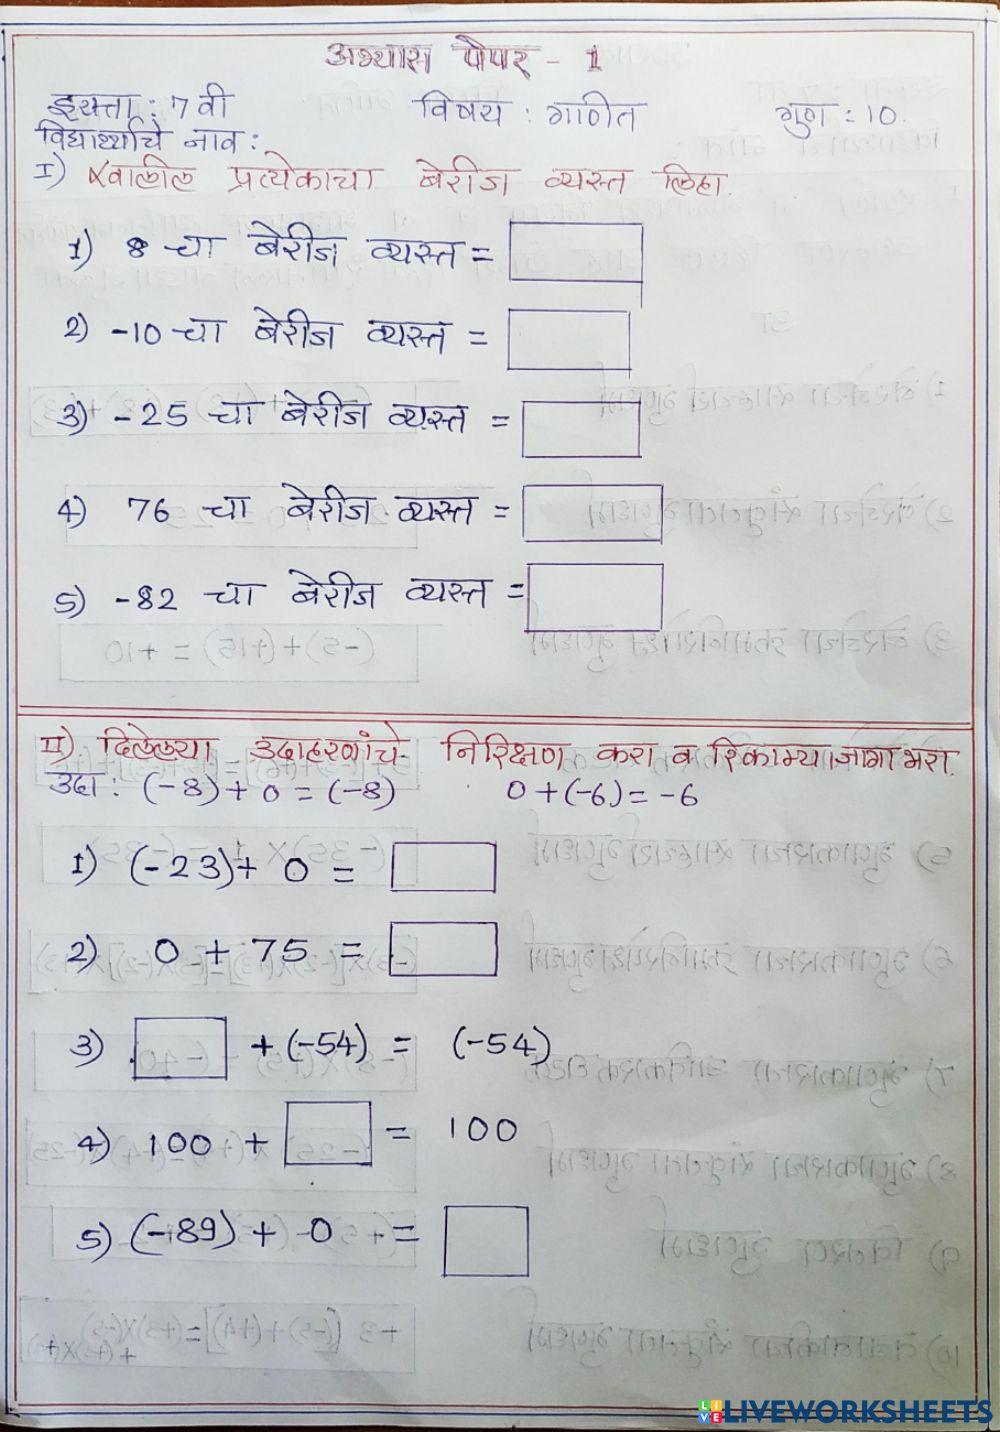 अभ्यास पेपर - 1
इयत्ता : 7 वी विषय : गणित गुण : 10.
विद्यार्थ्याचे नाव :
I) खालील प्रत्येकाचा बेरीज व्यस्त लिहा.
1) 8 चा बेरीज व्यस्त =
2) -10 चा बेरीज व्यस्त =
3) -25 चा बेरीज व्यस्त =
4) 76 चा बेरीज व्यस्त =
5) -82 चा बेरीज व्यस्त =
II) दिलेल्या उदाहरणांचे निरिक्षण करा व रिकाम्या जागा भरा.
उदा : (-8) + 0 = (-8) 0 + (-6) = -6
1) (-23) + 0 =
2) 0 + 75 =
3) + (-54) = (-54)
4) 100 + = 100
5) (-89) + 0 =
LIVEWORKSHEETS